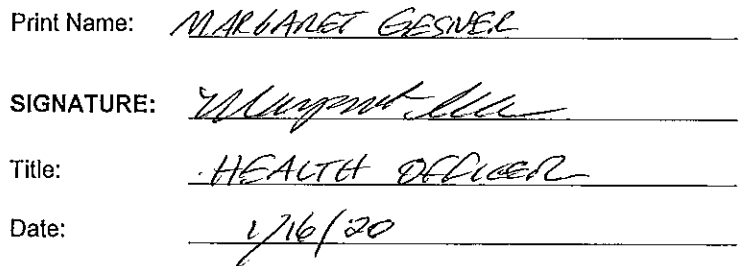 Print Name: MARGARET GESNER
SIGNATURE: Margaret
Title: HEALTH OFFICER
Date: 1/16/20